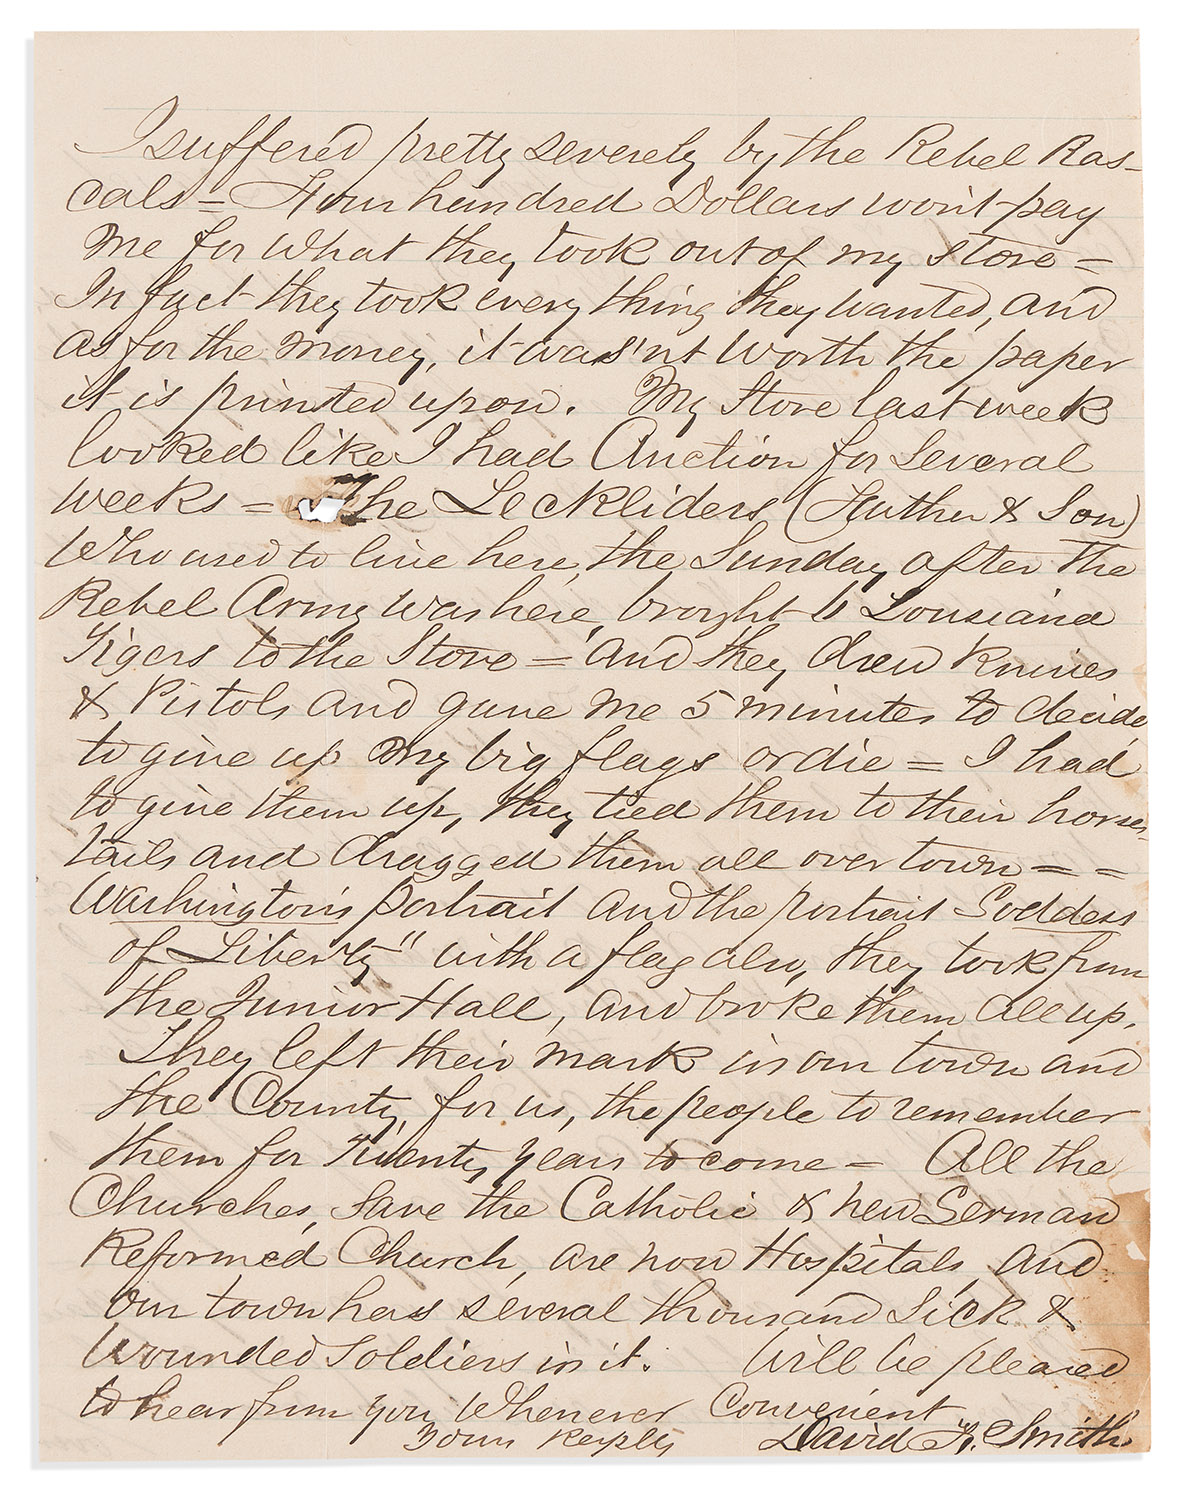 I suffered pretty severely by the Rebel Ras-
cals = Four hundred Dollars won't pay
me for what they took out of my store =
In fact they took every thing they wanted, and
as for the money, it was'nt worth the paper
it is printed upon. My Store last week
looked like I had Auction for several
weeks = The Leckliders (Father & Son)
who used to live here, the Sunday after the
Rebel Army was here, brought 6 Lousiana
Tigers to the Store = and they drew Knives
& Pistols and gave me 5 minutes to decide
to give up my big flags or die = I had
to give them up, they tied them to their horses
tails and dragged them all over town = =
Washington's portrait and the portrait Goddess
of Liberty" with a flag also, they took from
the Junior Hall, and broke them all up.
They left their mark in our town and
the County, for us, the people to remember
them for Twenty years to come = All the
Churches, save the Catholic & new German
Reformed Church, are now Hospitals, and
our town has several thousand Sick &
Wounded Soldiers in it. Will be pleased
to hear from you Whenever Convenient
Yours David Smith